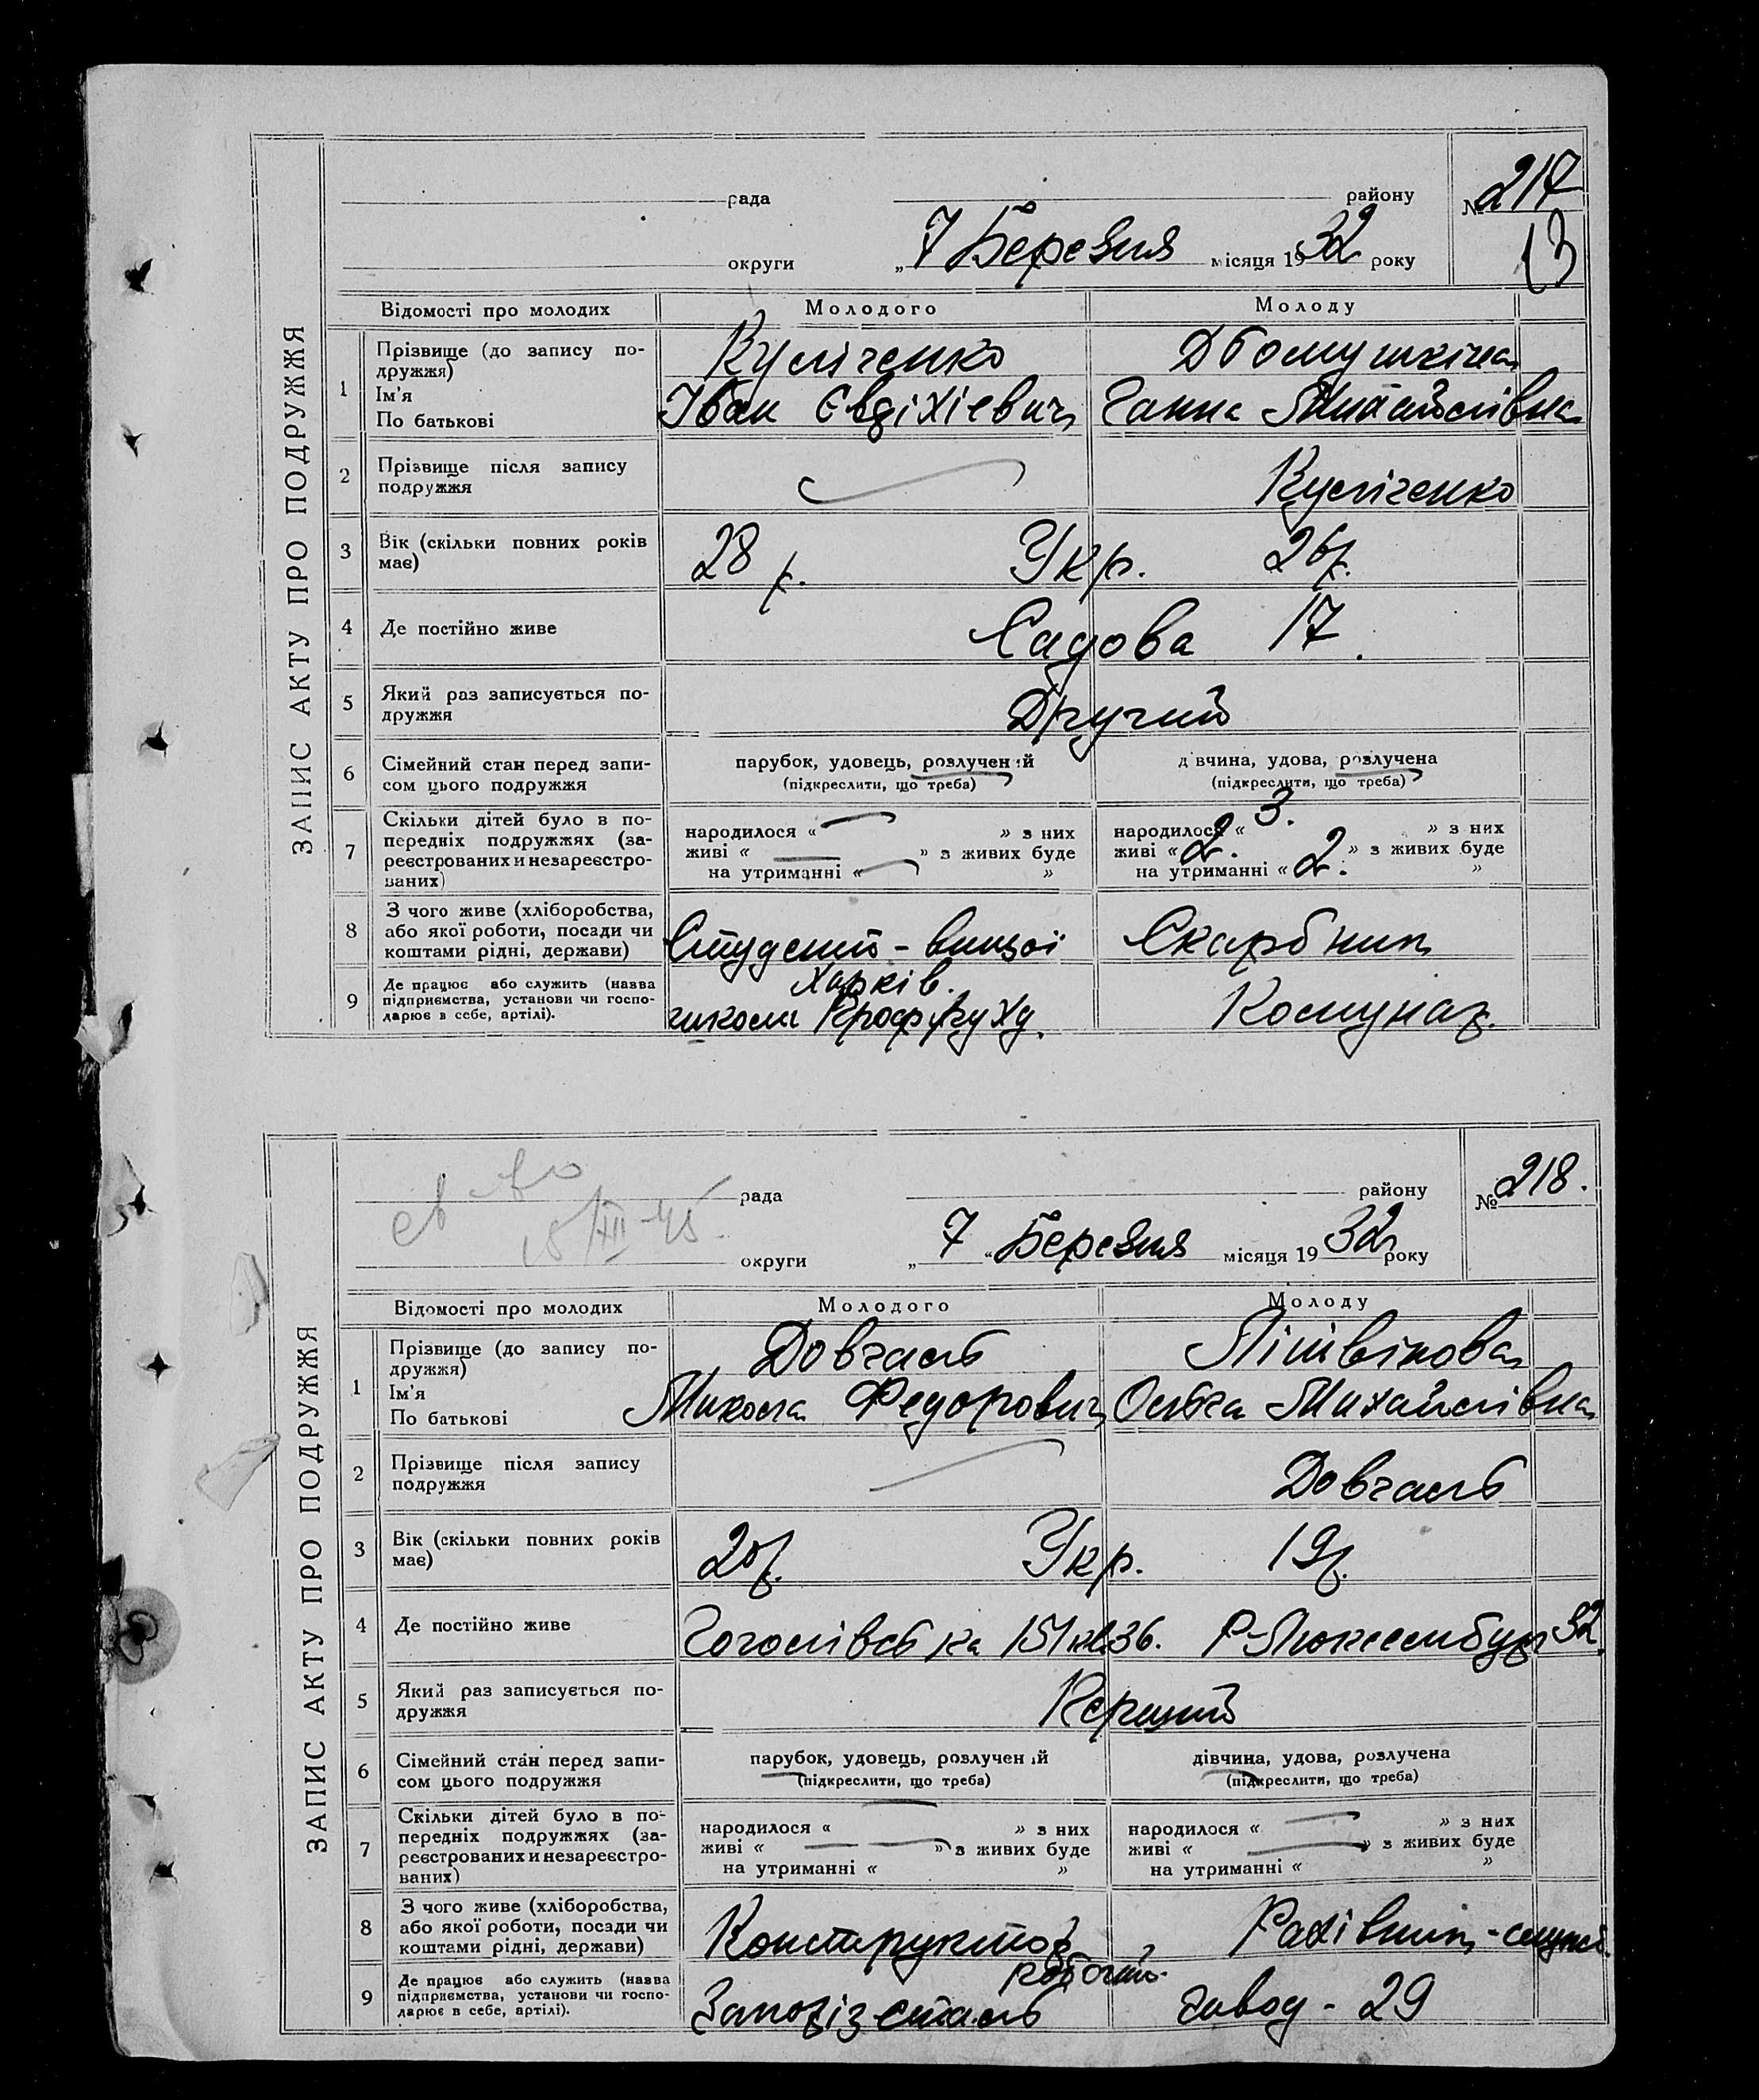 ЗАПИС АКТУ ПРО ПОДРУЖЖЯ
№ 217
13
рада району
округи „ 7 Березня місяця 1932 року
Відомості про молодих Молодого Молоду
1 Прізвище (до запису по-
дружжя)
Ім'я
По батькові
Куліченко
Іван Євдіхієвич
Двомушкіна
Ганна Михайлівна
2 Прізвище після запису
подружжя
Куліченко
3 Вік (скільки повних років
має)
28 р. Укр. 26 р.
4 Де постійно живе
Садова 17.
5 Який раз записується по-
дружжя
Другий
6 Сімейний стан перед запи-
сом цього подружжя
парубок, удовець, розлучений
(підкреслити, що треба)
дівчина, удова, розлучена
(підкреслити, що треба)
7 Скільки дітей було в по-
передніх подружжях (за-
реєстрованих и незареєстро-
ваних)
народилося « » з них
живі « » з живих буде
на утриманні « »
народилося « 3. » з них
живі « 2. » з живих буде
на утриманні « 2. »
8 З чого живе (хліборобства,
або якої роботи, посади чи
коштами рідні, держави)
Студент - вищої
Скарбник
9 Де працює або служить (назва
підприємства, установи чи госпо-
дарює в себе, артілі).
Харків.
школи Профруху.
Комунар.
ЗАПИС АКТУ ПРО ПОДРУЖЖЯ
№ 218.
рада району
15/XII-45
округи „ 7 " Березня місяця 1932 року
Відомості про молодих Молодого Молоду
1 Прізвище (до запису по-
дружжя)
Ім'я
По батькові
Довгаль
Микола Федорович
Літвінова
Ольга Михайлівна
2 Прізвище після запису
подружжя
Довгаль
3 Вік (скільки повних років
має)
20 р. Укр. 19 р.
4 Де постійно живе
Гоголівська 151 кв 36. Р-Люксембург 32.
5 Який раз записується по-
дружжя
Перший
6 Сімейний стан перед запи-
сом цього подружжя
парубок, удовець, розлучений
(підкреслити, що треба)
дівчина, удова, розлучена
(підкреслити, що треба)
7 Скільки дітей було в по-
передніх подружжях (за-
реєстрованих и незареєстро-
ваних)
народилося « » з них
живі « » з живих буде
на утриманні « »
народилося « » з них
живі « » з живих буде
на утриманні « »
8 З чого живе (хліборобства,
або якої роботи, посади чи
коштами рідні, держави)
Конструктор
робочий.
Рахівник-служ.
9 Де працює або служить (назва
підприємства, установи чи госпо-
дарює в себе, артілі).
Запорізсталь
завод - 29